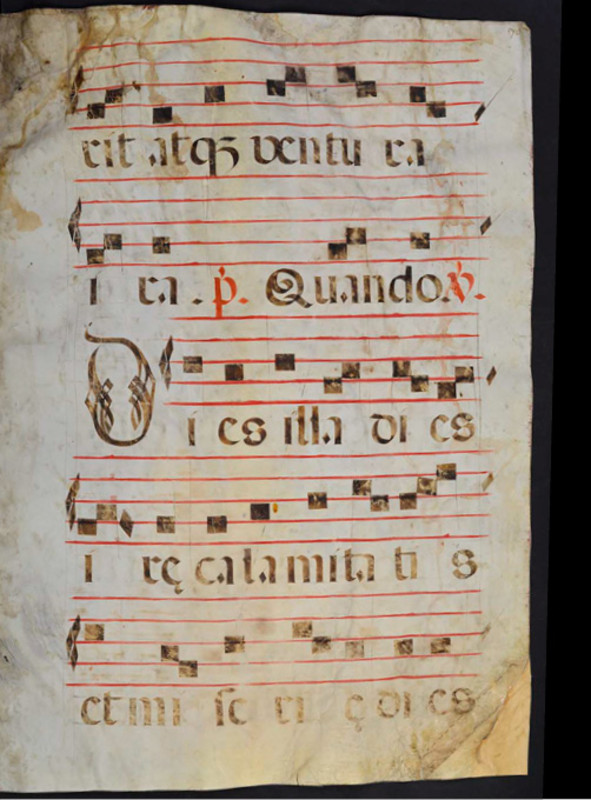 rit atqꝫ ventu ra
i ra. p̸. Quando. v̸.
Dies illa di es
i rę calamita ti s
et mi se ri ę di es